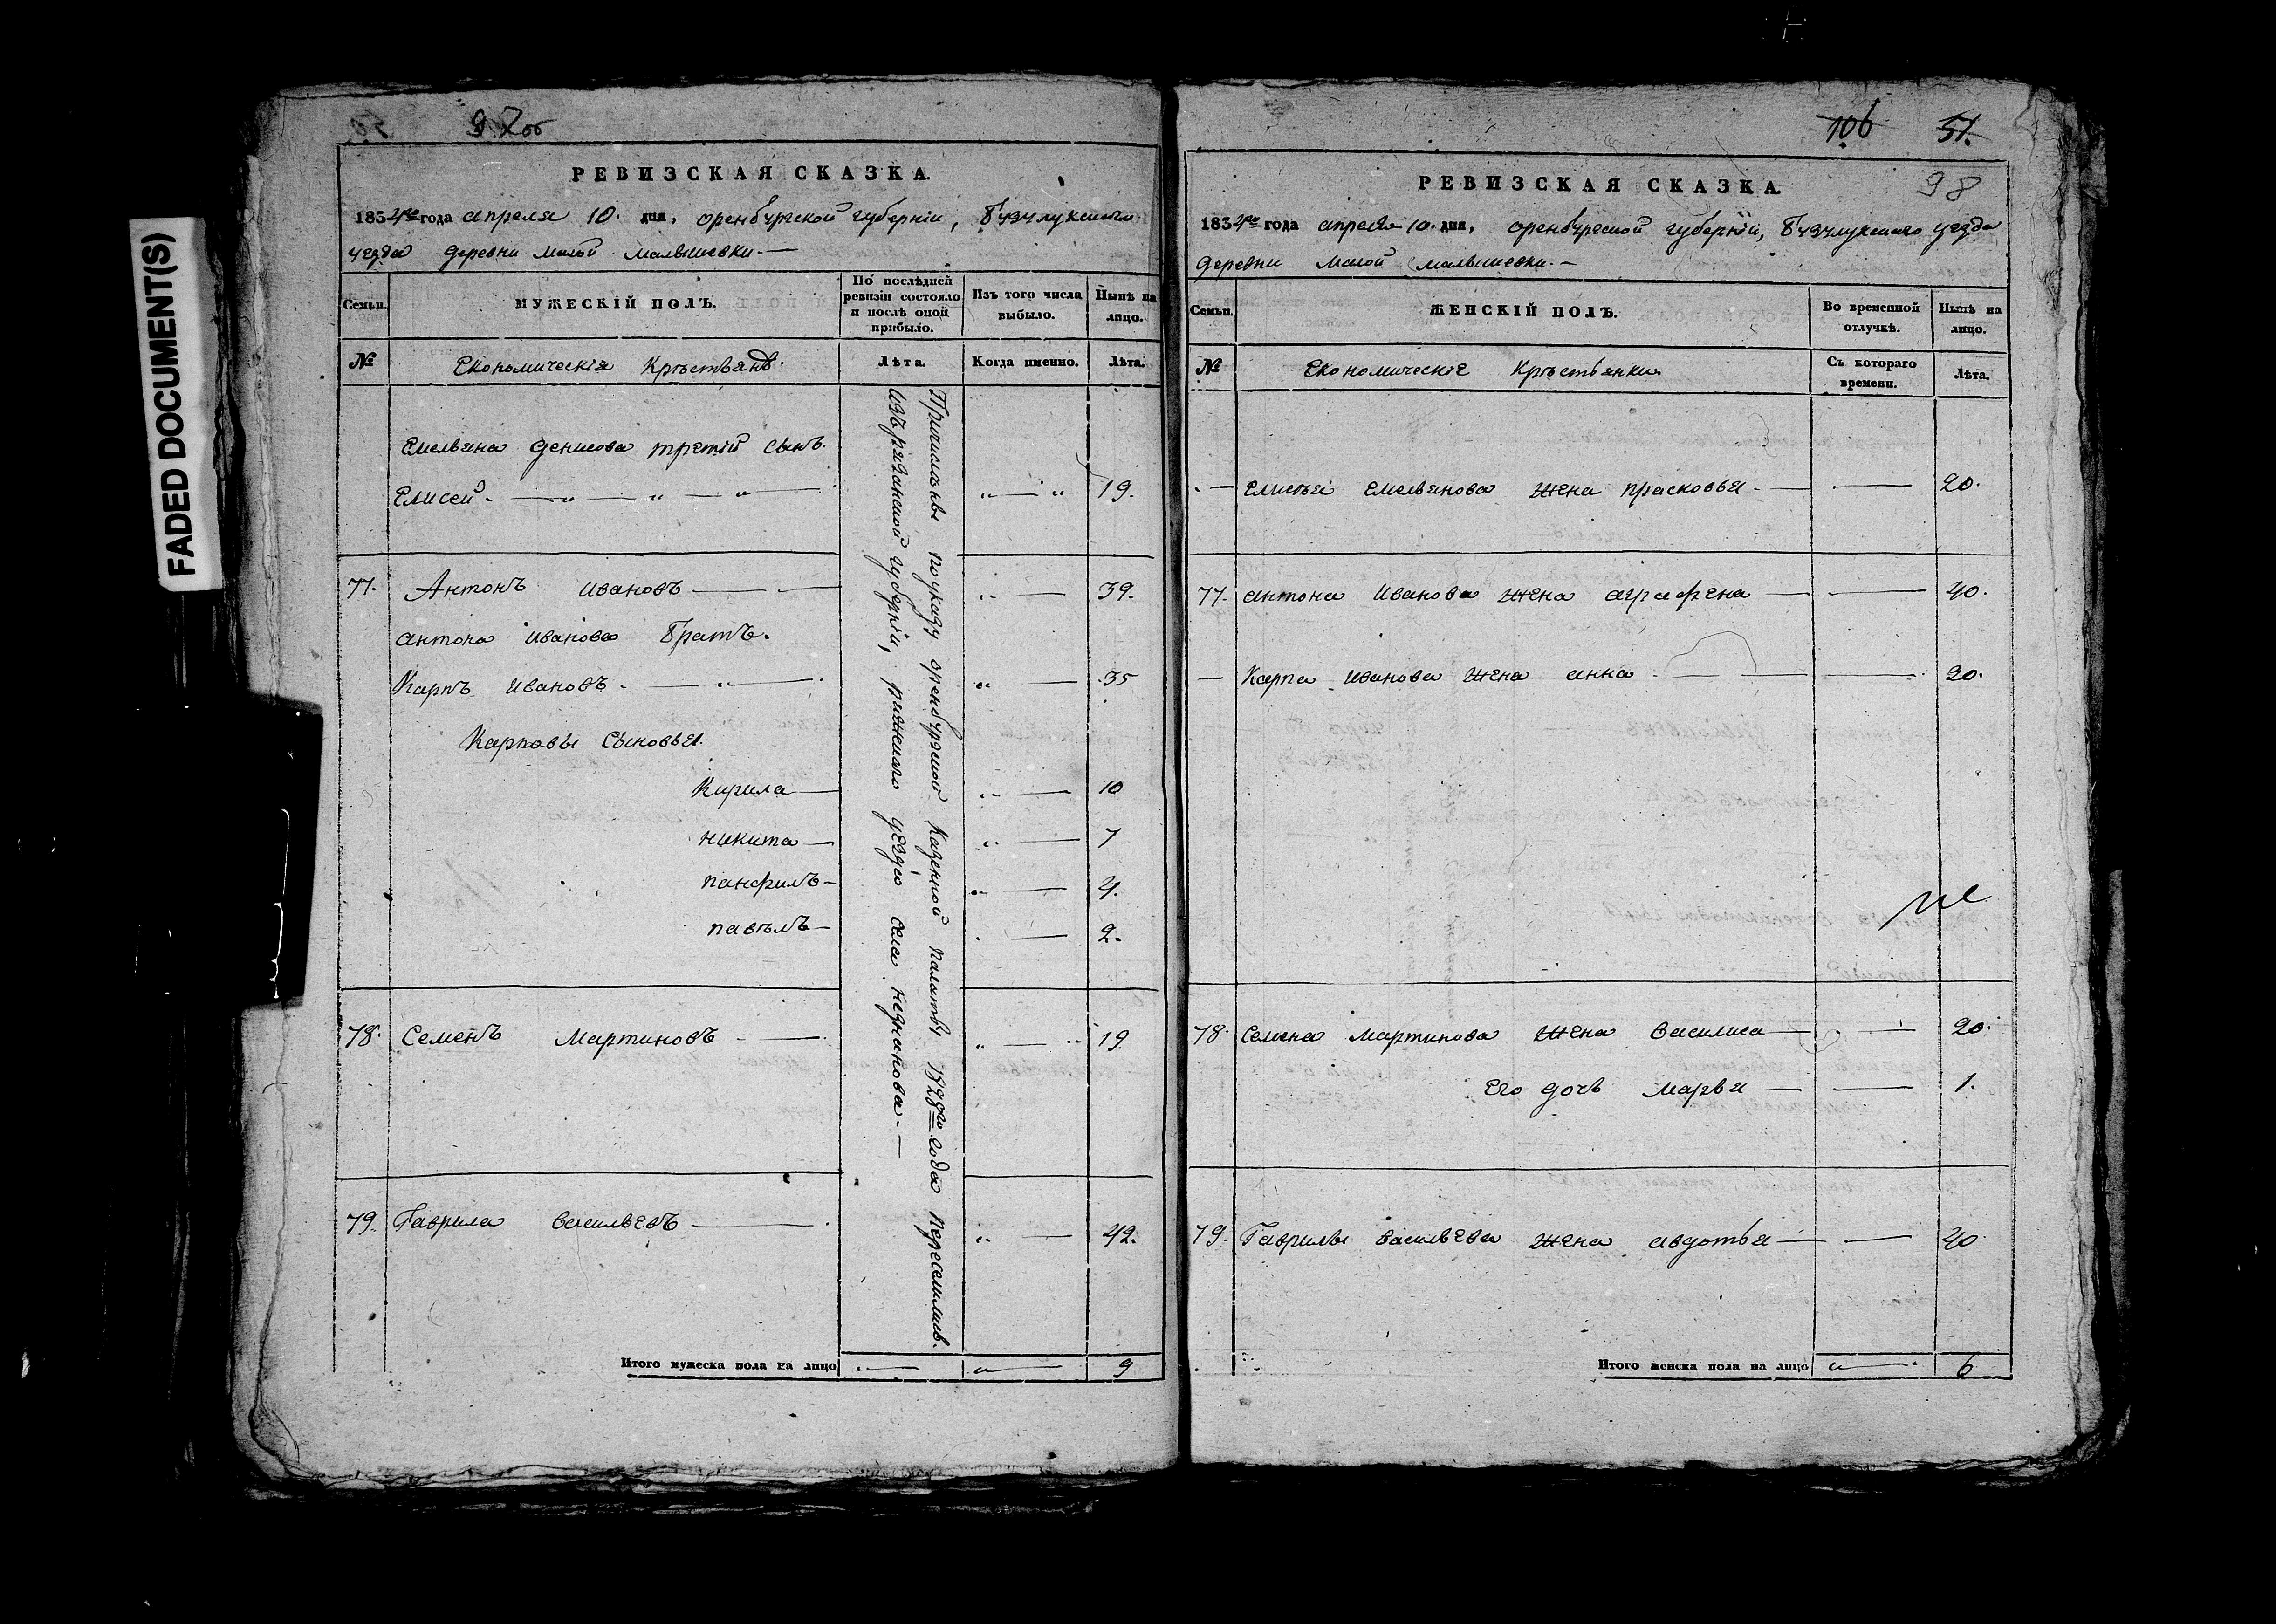 FADED DOCUMENT(S)
97об
РЕВИЗСКАЯ СКАЗКА.
1834го года апреля 10. дня, оренбургской губернии, бузулукскаго
уезда деревни малой малышевки.—
Семьи.
МУЖЕСКІЙ ПОЛЪ.
По послѣдней ревизіи состояло и послѣ оной прибыло.
Изъ того числа выбыло.
Нынѣ на лицо.
№
Економическія Крѣстьянъ.
Лѣта.
Когда именно.
Лѣта.
Причислены по указу оренбургской Казенной палаты 1828го года переселились
изъ рязанской губерніи, ряжскаго уезда села
Емельяна денисова третій сынъ.
Елисей. — „ — „ — „ — „ — „ 19.
77. Антонъ Ивановъ — „ — 39.
антона иванова братъ.
Карпъ ивановъ. — „ — „ — 35
Карповы сыновья.
Кирила — „ — 10
никита — „ — 7
панфилъ — „ — 4.
павѣлъ — — 2.
78. Семенъ Мартиновъ — „ — „ 19
79. Гаврила васильевъ — „ — 42.
Итого мужеска пола на лицо — „ — 9
106 51.
98
РЕВИЗСКАЯ СКАЗКА.
1834го года апреля 10. дня, оренбурской губерніи, бузулукскаго уезда
деревни малой малышевки. —
Семьи.
ЖЕНСКІЙ ПОЛЪ.
Во временной отлучкѣ.
Нынѣ на лицо.
№
Економическіе Крѣстьянки.
Съ котораго времени.
Лѣта.
— Елисѣя Емельянова жена прасковья — — 20.
77. антона Иванова жена аграфена — — 40.
— Карпа Иванова жена анна — — 30.
78. Семена Мартинова жена василиса — — 20.
Его дочь марья — — 1.
79. Гаврилы васильева жена авдотья — — 40
Итого женска пола на лицо „ — 6